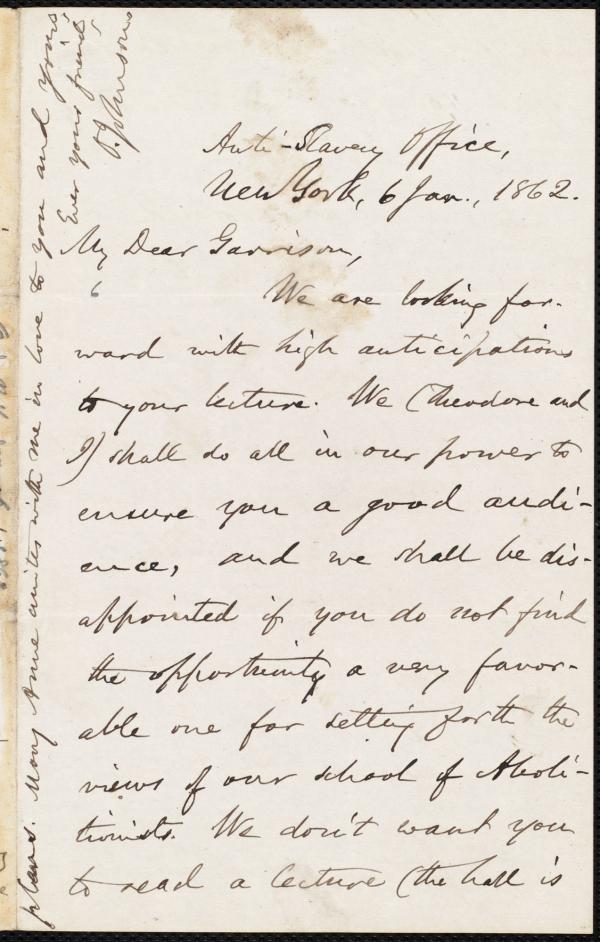 Anti-Slavery Office,
New York, 6 Jan., 1862.
My Dear Garrison,
We are looking for-
ward with high anticipations
to your lecture. We (Theodore and
I) shall do all in our power to
ensure you a good audi-
ence, and we shall be dis-
appointed if you do not find
the opportunity a very favor-
able one for setting forth the
views of our school of Aboli-
tionists. We don't want you
to read a lecture (the hall is
plans. Mary Anne unites with me in love to you and yours
Ever your friend
O. Johnson